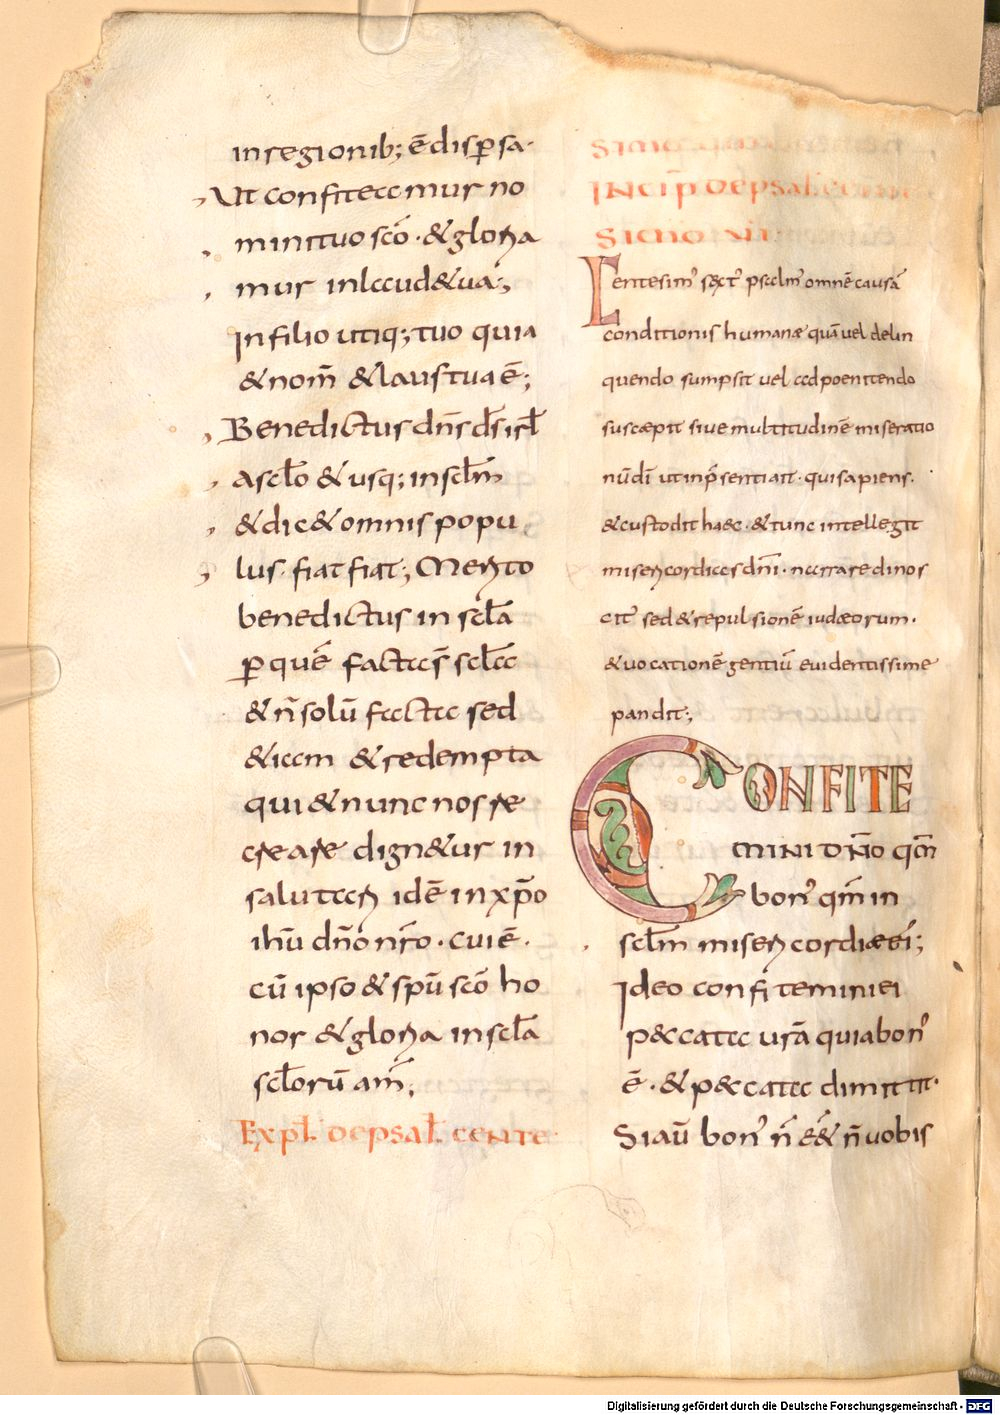 in regionib; ē disp̄sa·
Ut confiteamur no
mini tuo sc̄o · & gloria
mur in laud& ua;
In filio utiq; tuo quia
& nom̄ & laus tua ē;
Benedictus dn̄s ds̄ isrl̄
a sclo & usq; in sclm̄
& dic& omnis popu
lus · fiat fiat; Merito
benedictus in scl̄a
p̄ quē facta s̄ scl̄a
& n̄ solū facta sed
&iam & redempta
qui & nunc nos re
creare dign&ur in
salutari idē in xp̄o
ihū dn̄o nr̄o · cui ē ·
cū ipso & spū sc̄o ho
nor & gloria in scl̄a
scl̄orū am̄;
Expl̄ de psal̄ cente
simo
Incip̄ de psal̄
simo
Centesim' sext' psalm' omnē causā
conditionis humanæ quā uel delin
quendo sumpsit uel ad poenitendo
suscæpit siue multitudinē miseratio
nū dī ut in p̄sentiait · qui sapiens ·
& custodit haec · & tunc intellegit
misericordias dn̄i · narrare dinos
cit sed & repulsionē iudæorum ·
& uocationē gentiū euidentissime
pandit;
CONFITE
MINI DN̄O qm̄
bon' qm̄ in
scl̄m misericordia ei;
Ideo confitemini ei
p&cata ur̄a quia bon'
ē · & p&cata dimittit·
Si aū bon' n̄ ēē& n̄ uobis
Digitalisierung gefördert durch die Deutsche Forschungsgemeinschaft - DFG